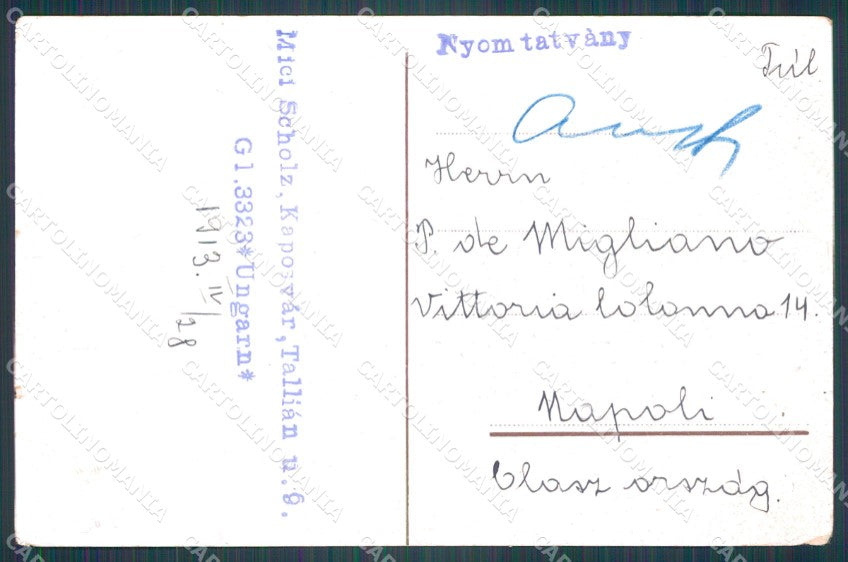 Mici Scholz, Kaposvár, Tallián u.6.
Gl.3323*Ungarn*
1913. IV/28
Nyomtatvány
Herrn
P. de Migliano
Vittoria Colonna 14.
Napoli
Olasz ország.
CARTOLINOMANIA